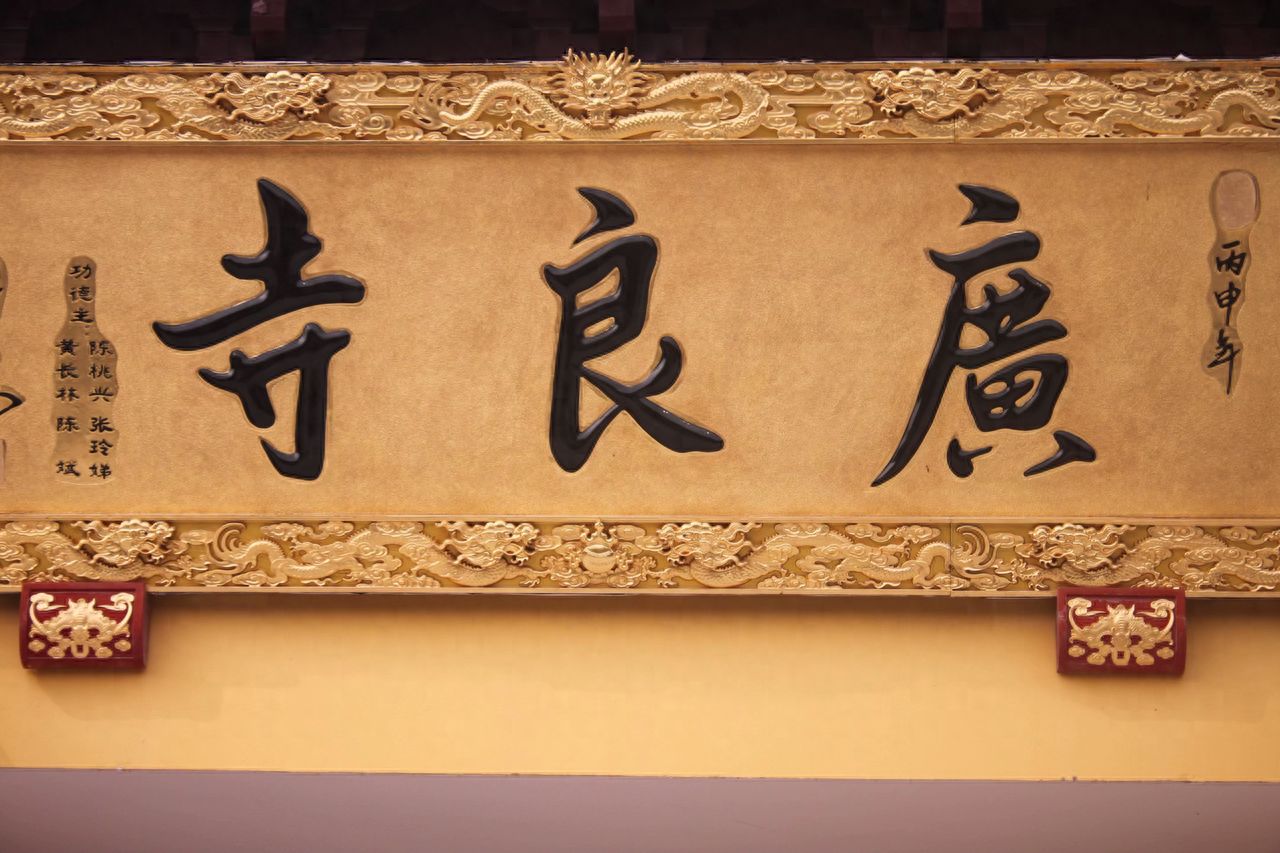 丙申年
廣良寺
功德主：
陈桃兴 张玲娣
黄长林 陈斌